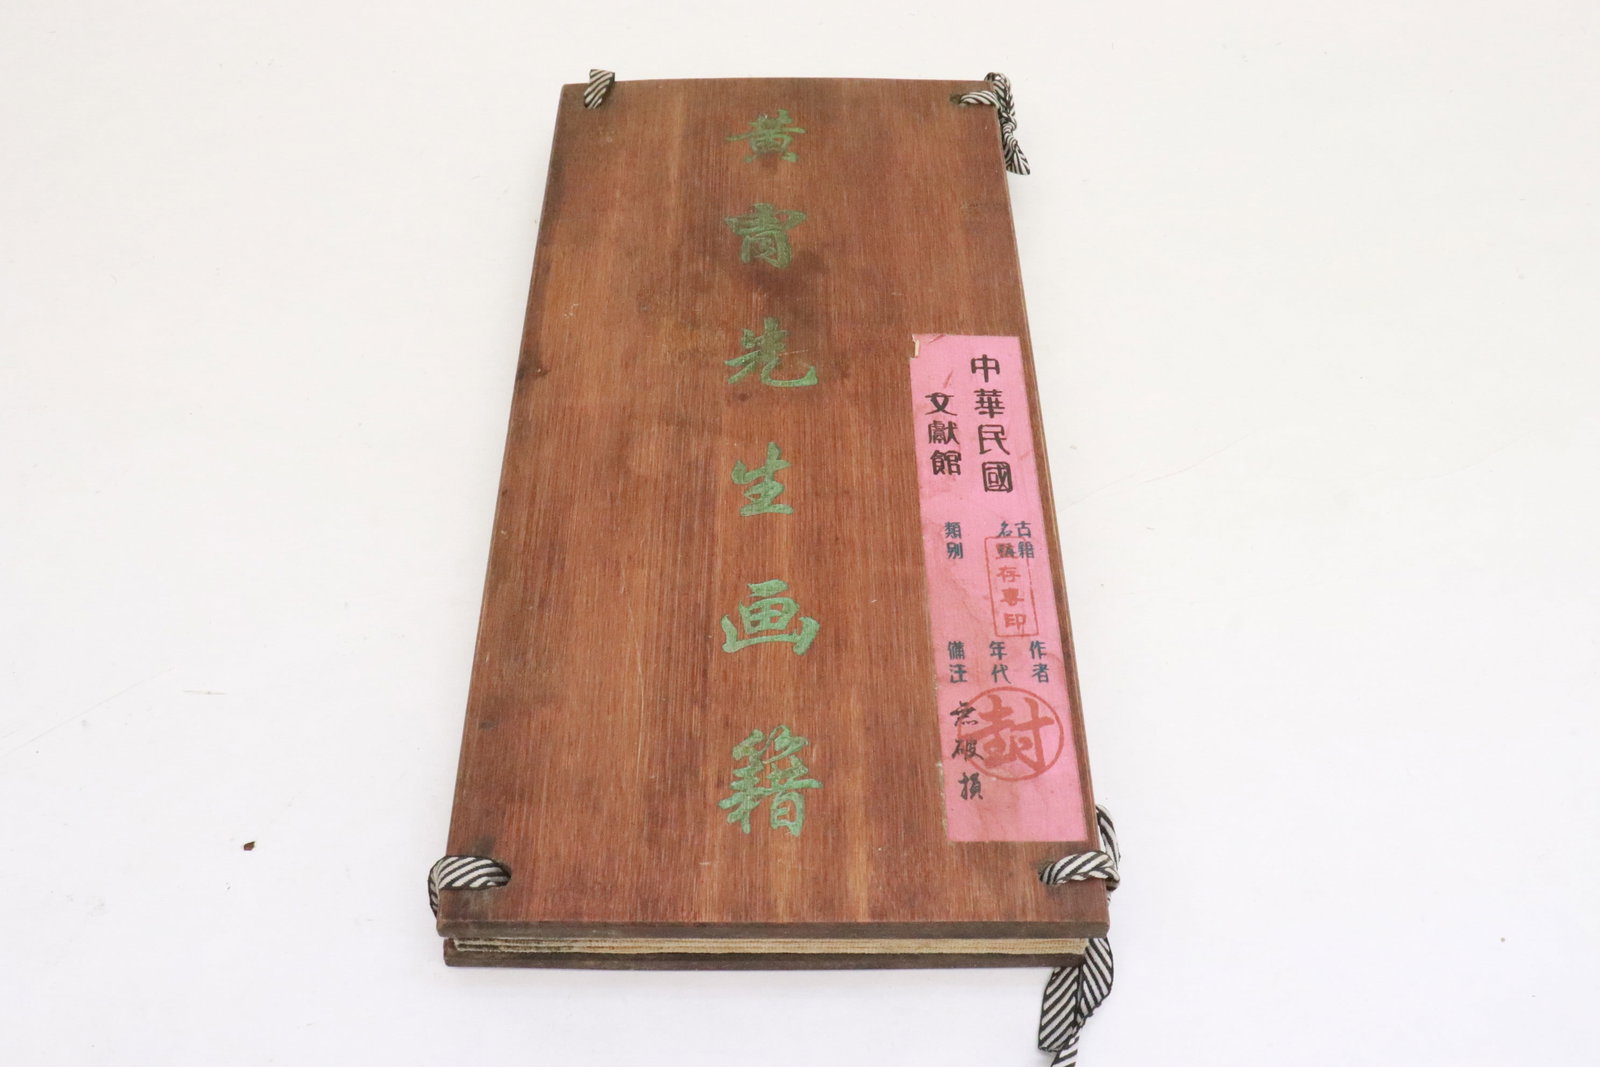 黄胄先生画籍
中華民國
文獻館
古籍
名
類別
存專印
作者
年代
備注
無破損
封